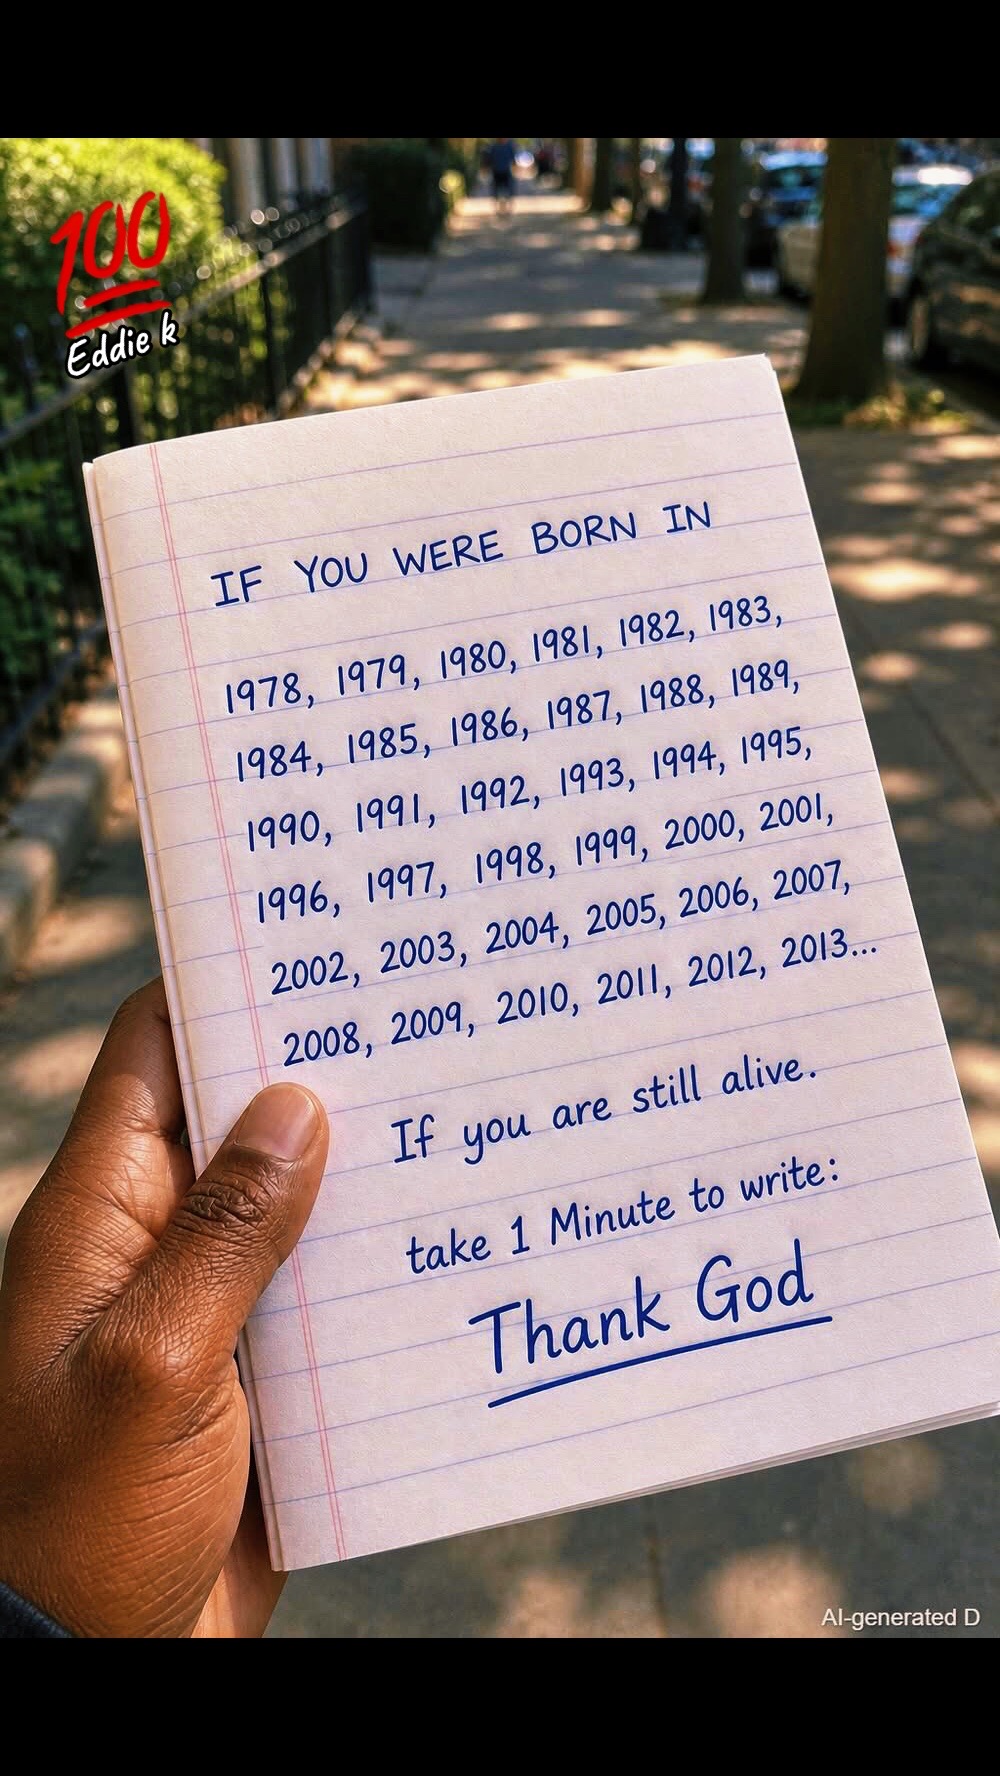 100
Eddie k
IF YOU WERE BORN IN
1978, 1979, 1980, 1981, 1982, 1983,
1984, 1985, 1986, 1987, 1988, 1989,
1990, 1991, 1992, 1993, 1994, 1995,
1996, 1997, 1998, 1999, 2000, 2001,
2002, 2003, 2004, 2005, 2006, 2007,
2008, 2009, 2010, 2011, 2012, 2013...
If you are still alive.
take 1 Minute to write:
Thank God
AI-generated D